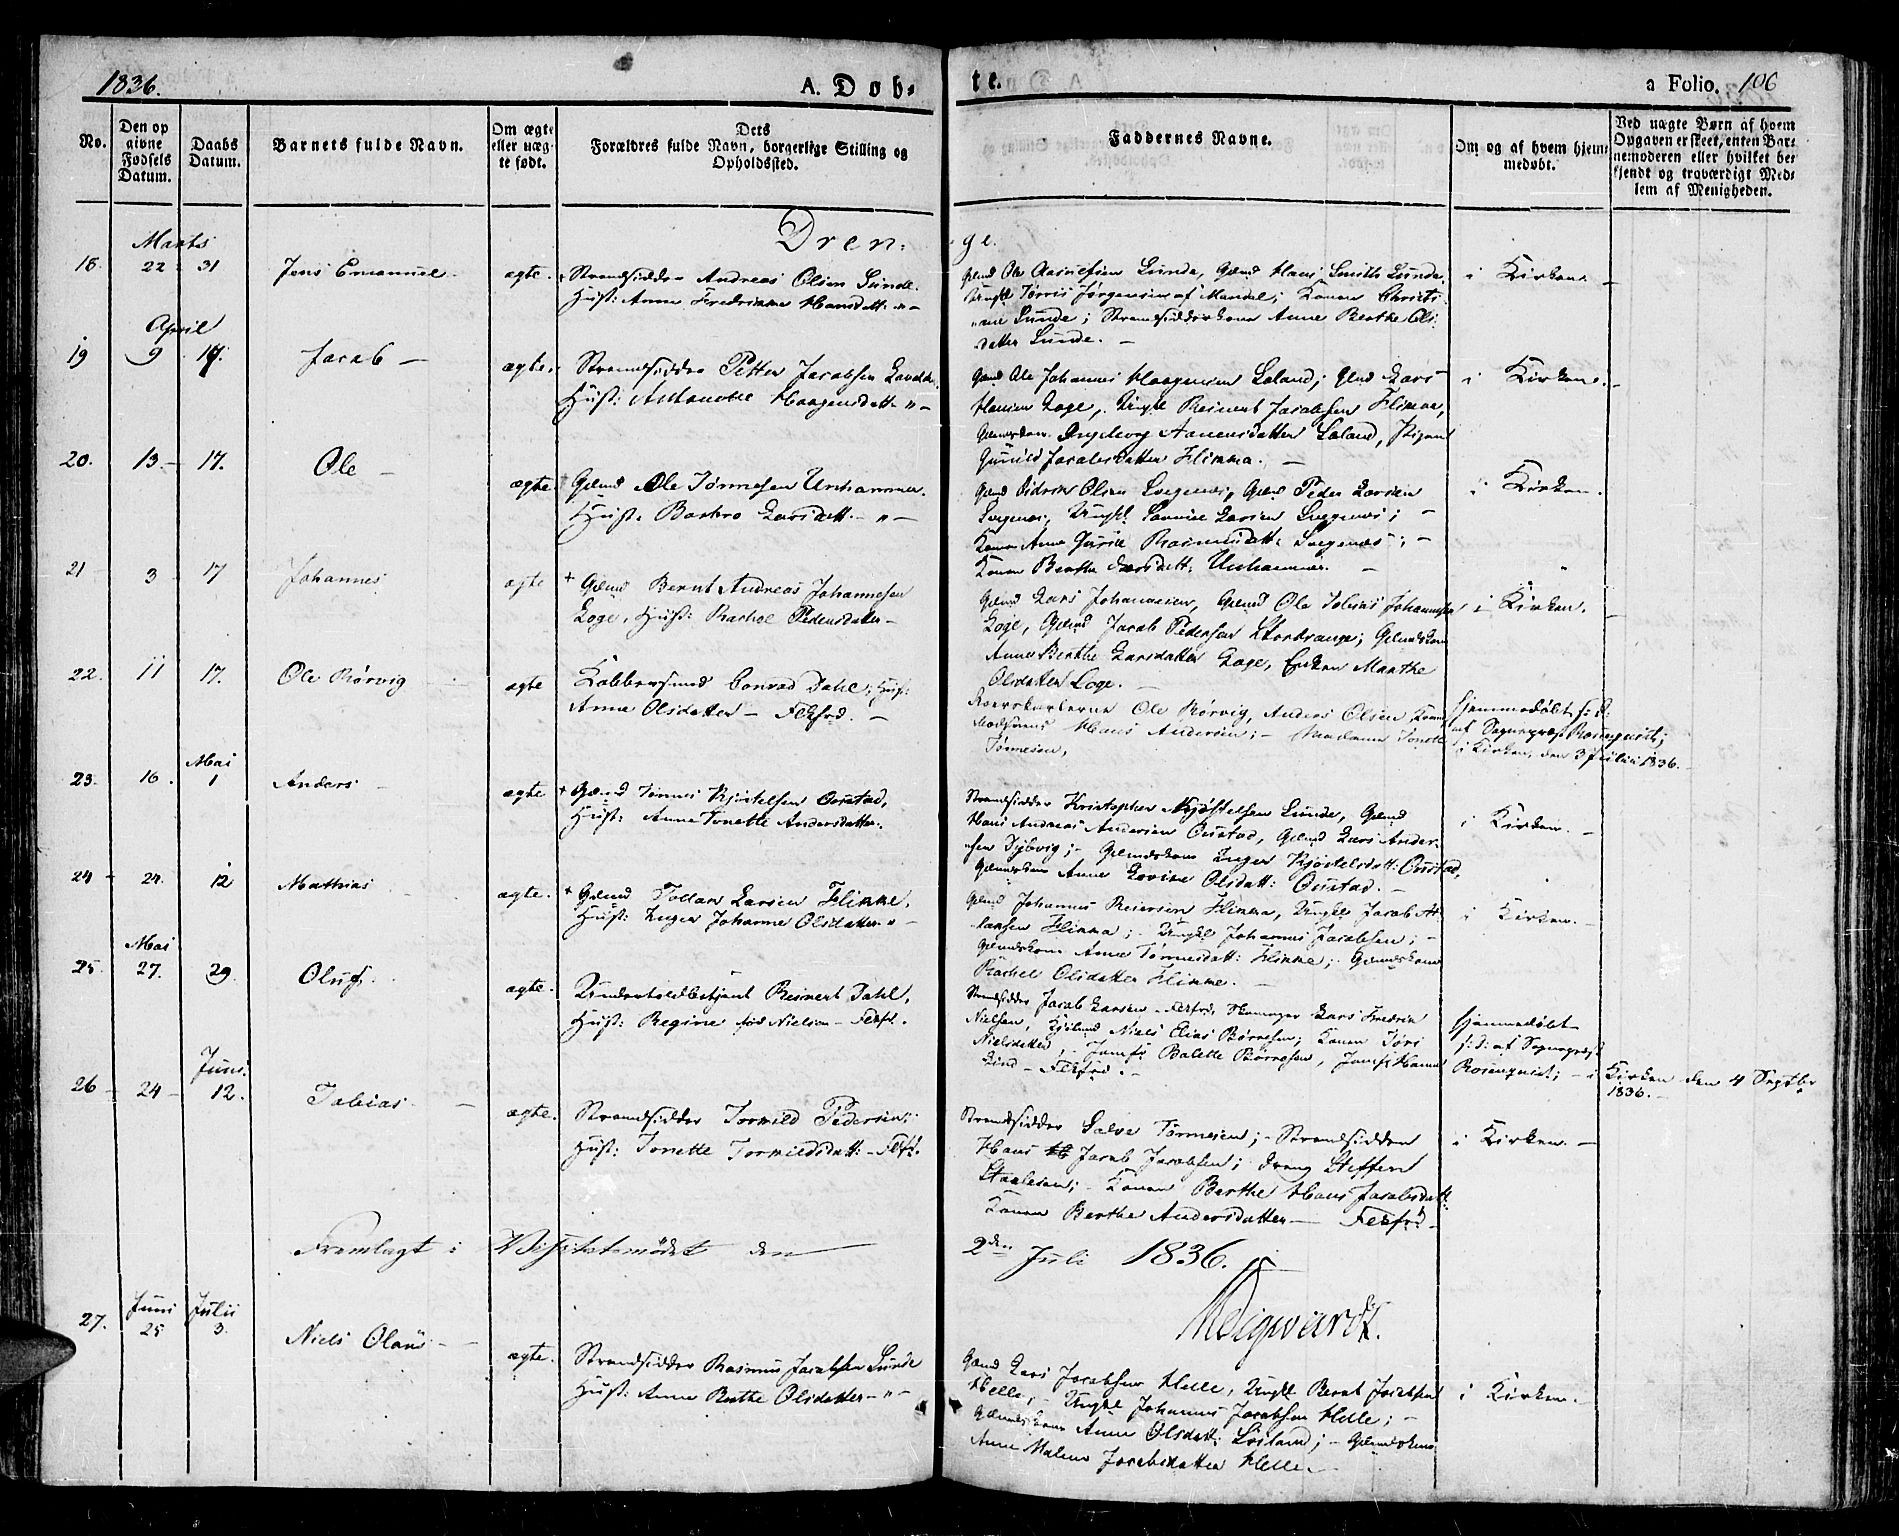 1836.
A. Døb-
te.
a Folio. 106
No.
Den op
givne
Fødsels
Datum.
Daabs
Datum.
Barnets fulde Navn.
Om ægte
eller uæg-
te født.
Dets
Forældres fulde Navn, borgerlige Stilling og
Opholdssted.
Faddernes Navne.
Om og af hvem hjem-
medøbt.
Ved uægte Børn af hvem
Opgaven er skeet, enten Bar-
nemoderen eller hvilket be-
kjendt og troværdigt Med-
lem af Menigheden.
Dren-
ge.
Marts
18. 22 31 Jens Emanuel ægte. Strandsidder Andreas Olsen Lunde.
Hust: Anne Fredrikke Hansdatt: " -
Gmd Ole Lunde, Gmd Hans Smith Lunde,
Ungkl Tørris Jørgensen af Mandal; Konen Christi-
ane Lunde; Strandsidderkone Anne Berthe Ols-
datter Lunde. -
i Kirken. -
April
19 9 17. Jacob - ægte. Strandsidder Petter Jacobsen
Hust: Haagensdatt: " -
Gmd Ole Johannes Haagensen Loland; Gmd Lars
Hansen Loge, Ungkl Reinert Jacobsen Flikka,
Gmdskone Ingeborg Loland, Pigen
Gunild Jacobsdatter Flikka. -
i Kirken. -
20. 13. - 17. Ole - ægte. Gmd Ole Tønnesen Urhammer.
Hust: Barbro Larsdatt: " -
Gmd Didrik Olsen Svegenes, Gmd Peder Larsen
Svegenes, Ungkl Larsen Svegenes; -
Konen Anne Rasmusdatt: Svegenes; -
Konen Berthe Larsdatt: Urhammer. -
i Kirken.
21 3 17 Johannes ægte + Gmd Bernt Andreas Johannesen
Loge, Hust: Rachel Pedersdatter -
Gmd Lars Johannesen, Gmd Ole Tobias Johannesen
Loge, Gmd Jacob Pedersen Stordrange; Gmdskone
Anne Berthe Larsdatter Loge, Enken Marthe
Olsdatter Loge. -
i Kirken. -
22. 11 17. Ole Rørvig - ægte Kobbersmed Conrad Dahl; Hust:
Anne Olsdatter - Flkfrd. -
Ole Rørvig, Anders Olsen
Hans Andersen; - Madame Tonette
Tønnesen,
Hjemmedøbt
af Sognepræst Rosenqvist;
i Kirken, den 3 Julii 1836. -
Mai
23. 16. 1 Anders - ægte + Gmd Tønnes Kjøstelsen Ousdad,
Hust: Anne Tonette Andersdatter.
Strandsidder Kristopher Kjøstelsen Lunde, Gmd
Hans Andreas Andersen Oustad, Gmd Lars Ander-
sen Dybvig; - Gmdskone Inger Kjøstelsdatt: Oustad,
Gmdskone Anne Lovise Olsdatt: Oustad. -
i Kirken. -
24 - 24. 12 Mathias ægte. + Gmd Todar Larsen Flikke,
Hust: Inger Johanne Olsdatter " -
Gmd Johannes Reiersen Flikka, Ungkl Jacob At-
lansen Flikka; - Ungkl Johannes Jacobsen; -
Gmdskone Anne Tønnesdatt: Flikke; - Gmdskone
Rachel Olsdatter Flikke. -
i Kirken. -
Mai
25. 27. 29. Oluf. ægte. Underholdbetjent Reinert Dahl,
Hust: Regine fød Nielsen - Flkfr.
Strandsidder Jacob Larsen - Flkfrd, Lars Fredrik
Nielsen, Niels Elias Børresen; Konen
Nielsdatter, - Jomfr Bolette Børresen, Jomfr Hanne
Lund - Flkfrd. -
Hjemmedøbt
af Sognepræst
Rosenqvist; - i Kirken den 4 Septbr
1836. -
Juni.
26 - 24 - 12. Tobias. - ægte. Strandsidder Torkild Pedersen;
Hust: Tonette Torkildsdatt: - Flkf.
Strandsidder Salve Tønnesen; - Strandsidder
Hans Jacob Jacobsen; dreng Steffen
Staalesen; - Konen Berthe Hans Jacobsdatt:
Konen Berthe Andersdatter - Flkfrd -
i Kirken. -
Fremlagt i Visitatsmødet den
2den Juli 1836.
Juni Julii
27. 25 3. Niels Olaus - ægte. Strandsidder Rasmus Jacobsen Lunde
Hust: Anne Berthe Olsdatter - " -
Gmd Lars Jacobsen Helle, Ungkl Bernt Jacobsen
Helle; - Ungkl Johannes Jacobsen Helle; -
Gmdskone Anne Olsdatt: ; - Gmdskone
Anne Malene Jacobsdatter Helle. -
i Kirken. -